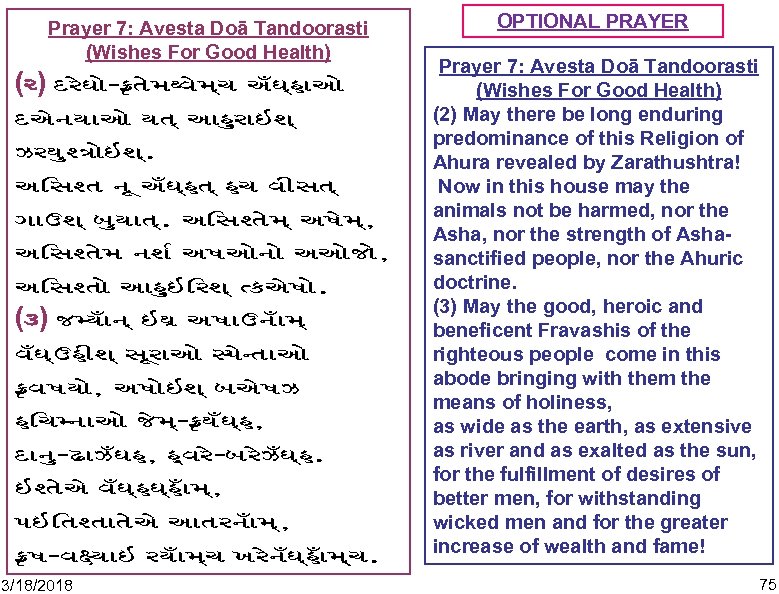 Prayer 7: Avesta Doā Tandoorasti
(Wishes For Good Health)
(૨) દરેઘો-ફ્રતેમથ્વેમ્ચ અઁઘ્હાઓ
દએનયાઓ યત્ આહુરાઈશ્
ઝરથુશ્ત્રોઈશ્.
અસિશ્ત નૂ અઁઘ્હત્ હચ વીસત્
ગાઉશ્ બુયાત્. અસિશ્તેમ્ અષેમ્,
અસિશ્તેમ નર્શ અષઓનો અઓજો,
અસિશ્તો આહુઈરિશ્ ત્કએષો.
(૩) જમ્યાઁન્ ઈથ્ર અષાઉનાઁમ્
વઁઘ્ઉહીશ્ સૂરાઓ સ્પેન્તાઓ
ફ્રવષયો, અષોઈશ્ બએષઝ
હચિમ્નાઓ જેમ્-ફ્રથઁઘ્હ,
દાનુ-દ્રાજઁઘ્હ, હ્વરે-બરેઝઁઘ્હ.
ઈશ્તેએ વઁઘ્હઘ્હાઁમ્,
પઈતિશ્તાતેએ આતરનાઁમ્,
ફ્રષ-વક્ષ્યાઈ રયાઁમ્ચ ખરેનઁઘ્હાઁમ્ચ.
OPTIONAL PRAYER
Prayer 7: Avesta Doā Tandoorasti
(Wishes For Good Health)
(2) May there be long enduring
predominance of this Religion of
Ahura revealed by Zarathushtra!
Now in this house may the
animals not be harmed, nor the
Asha, nor the strength of Asha-
sanctified people, nor the Ahuric
doctrine.
(3) May the good, heroic and
beneficent Fravashis of the
righteous people come in this
abode bringing with them the
means of holiness,
as wide as the earth, as extensive
as river and as exalted as the sun,
for the fulfillment of desires of
better men, for withstanding
wicked men and for the greater
increase of wealth and fame!
3/18/2018
75